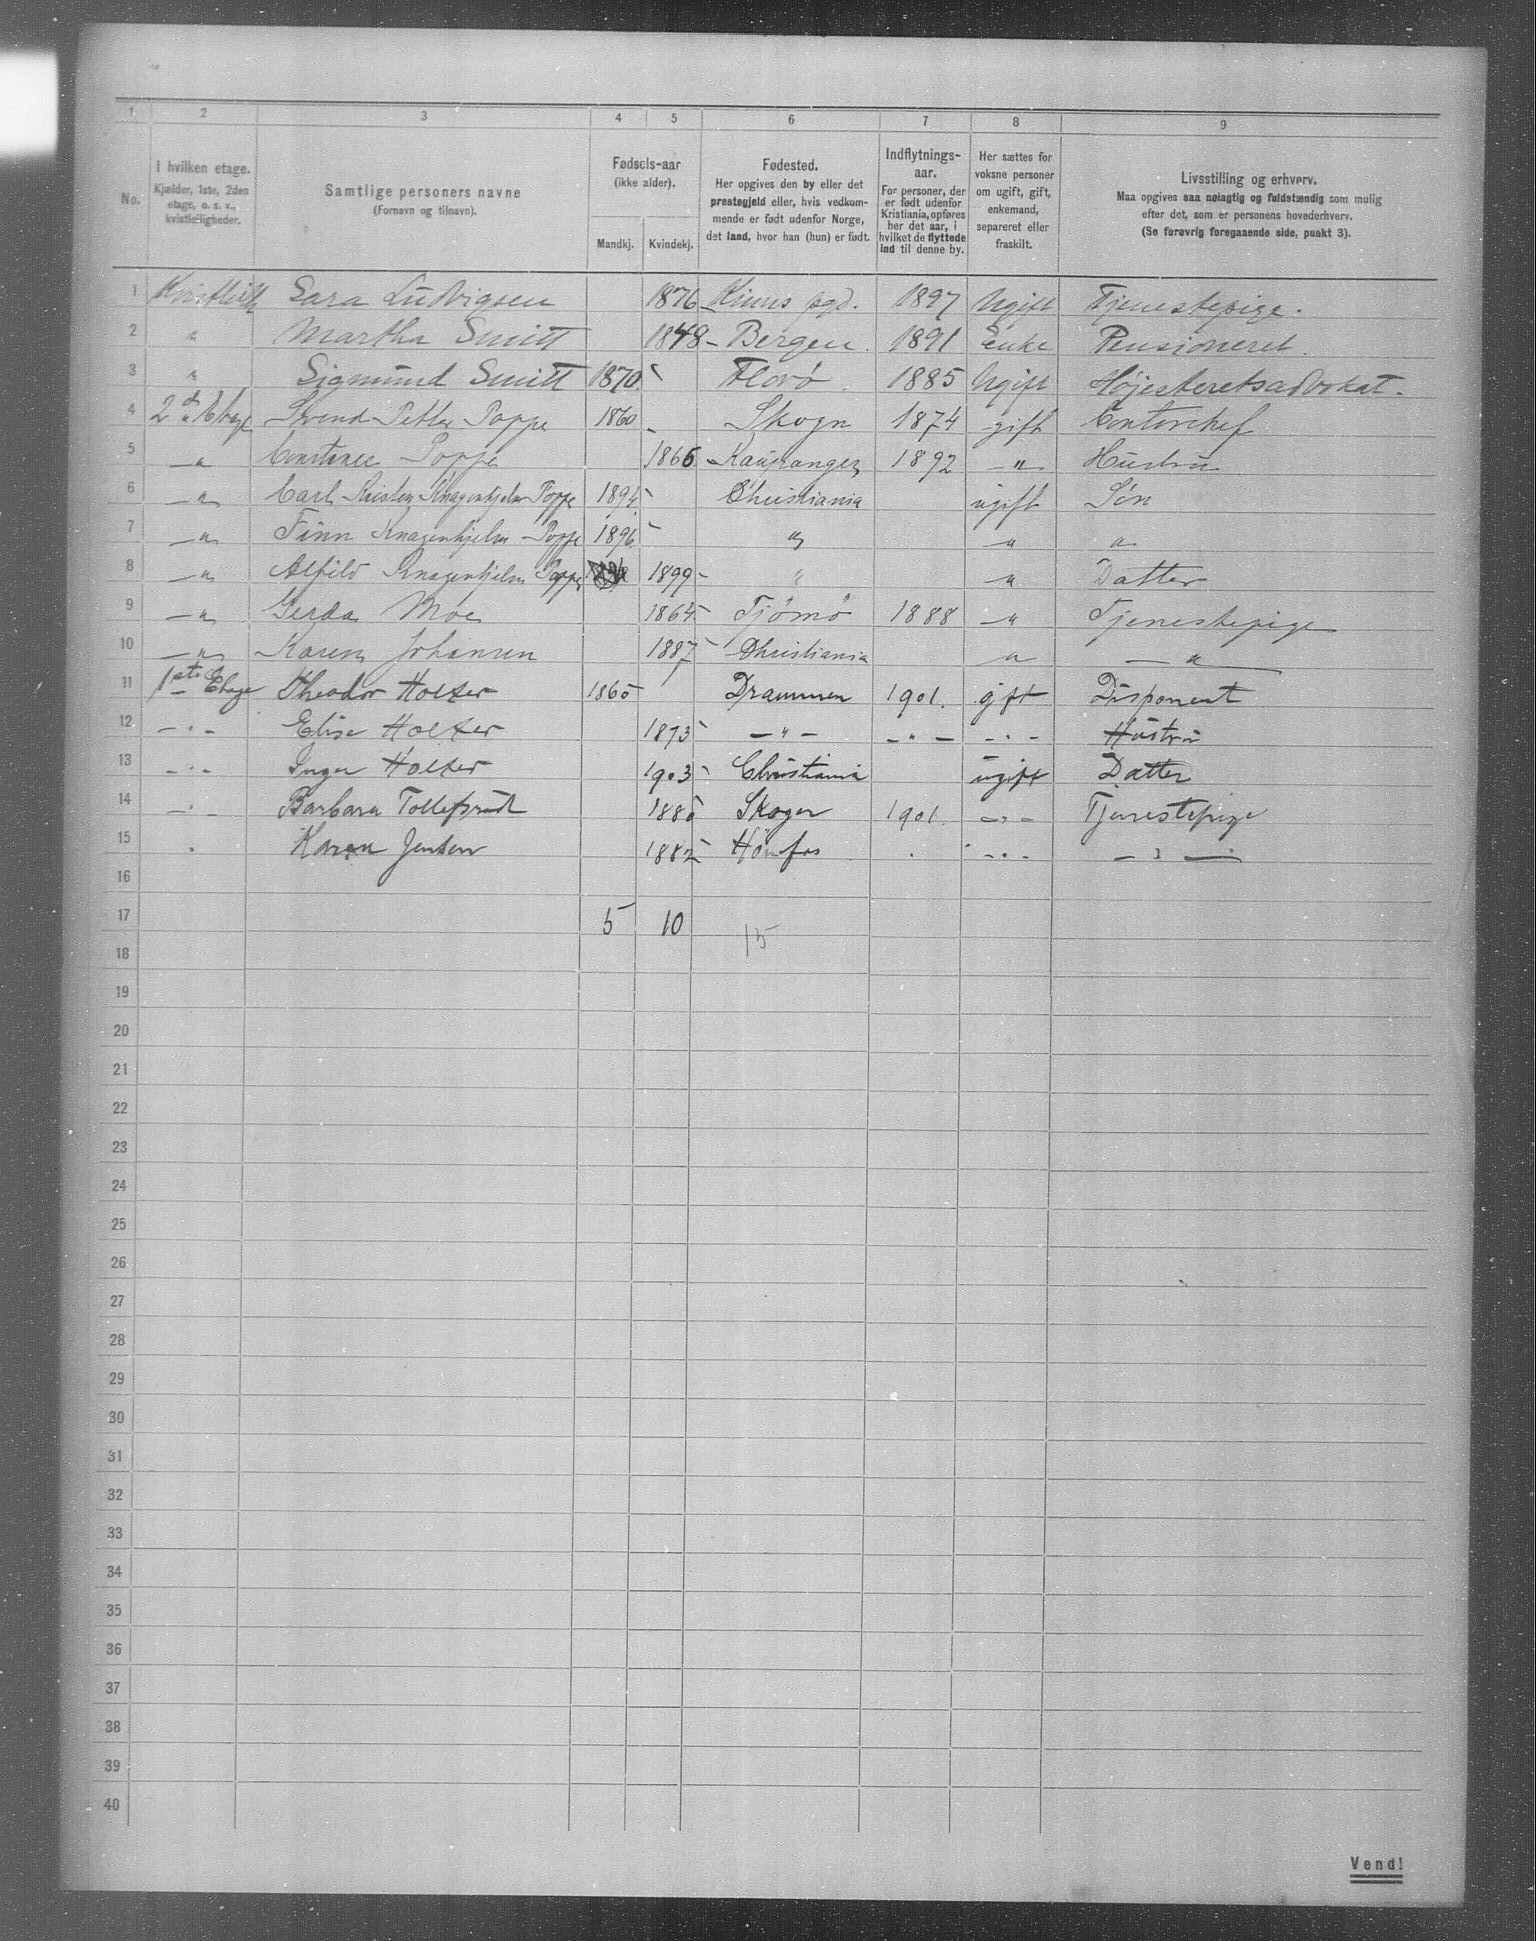 1 2 3 4 5 6 7 8 9
No.
I hvilken etage.
Kjælder, 1ste, 2den
etage, o. s. v.,
kvistleiligheder.
Samtlige personers navne
(Fornavn og tilnavn).
Fødsels-aar
(ikke alder).
Mandkj. Kvindekj.
Fødested.
Her opgives den by eller det
prestegjeld eller, hvis vedkom-
mende er født udenfor Norge,
det land, hvor han (hun) er født.
Indflytnings-
aar.
For personer, der
er født udenfor
Kristiania, opføres
her det aar, i
hvilket de flyttede
ind til denne by.
Her sættes for
voksne personer
om ugift, gift,
enkemand,
separeret eller
fraskilt.
Livsstilling og erhverv.
Maa opgives saa nøiagtig og fuldstændig som mulig
efter det, som er personens hovederhverv.
(Se forøvrig foregaaende side, punkt 3).
1 Sara Ludvigsen 1876 Kinns pgd. 1897 Ugift Tjenestepige.
2 " Martha Smitt 1848 Bergen. 1891 Enke Pensioneret.
3 " Sigmund Smitt 1870 Florø. 1885 Ugift Højesteretsadvokat.
4 2den Etage Svend Petter Poppe 1860 Skogn 1874 gift Contorchef
5 — " Constance Poppe 1866 Kaupanger 1892 — " Hustru
6 — " Carl Knagenhjelm Poppe 1894 Christiania ugift Søn
7 — " Finn Knagenhjelm Poppe 1896 " " "
8 — " Alfild Knagenhjelm Poppe 1899 " " Datter
9 — " Gerda Moe 1864 Tjømø 1888 — " Tjenestepige
10 — " Karen Johansen 1887 Christiania " — "
11 1ste Etage Theodor Holter 1865 Drammen 1901. gift Disponent
12 — " — Elise Holter 1873 — " — — " — — " — Hustru
13 — " — Inger Holter 1903 Christiania ugift Datter
14 — " — Barbara Tollefsrud 1880 Skoger 1901. — " — Tjenestepige
15 " Karen Jensen 1882 Hønefos " — " — — " —
16
17 5 10
15
18
19
20
21
22
23
24
25
26
27
28
29
30
31
32
33
34
35
36
37
38
39
40
Vend!